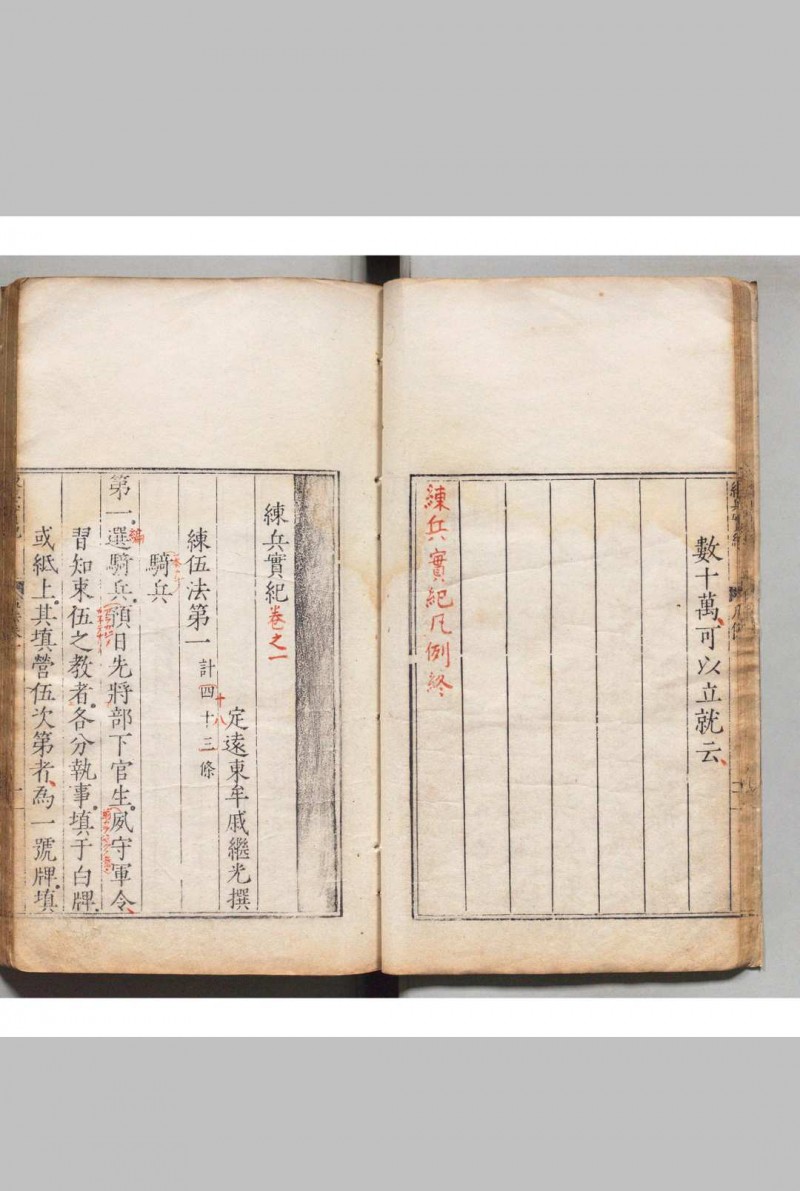 數十萬、可以立就云、
練兵實紀凡例終
練兵實紀卷之一
定遠東牟戚繼光撰
練伍法第一 計四十三條
十八
騎兵
第一。選騎兵。預日先將部下官生。夙守軍令、
編
習知束伍之教者。各分執事。填于白牌
或紙上。其填營伍次第者、為一號牌。填